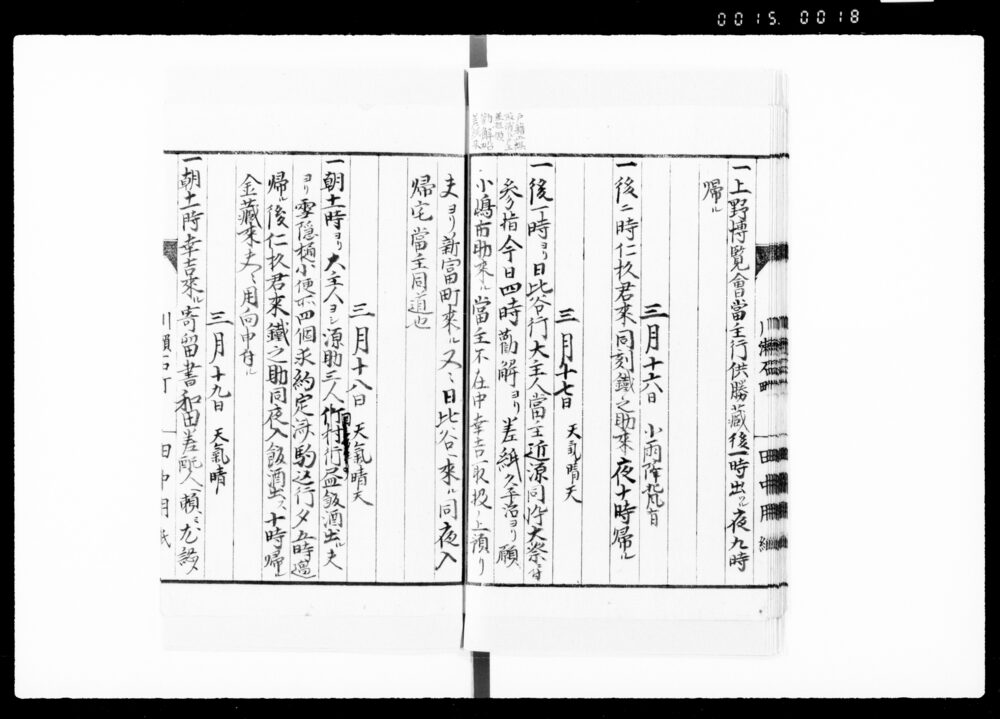 0015. 0018
一上野博覧會當主行供勝藏後一時出ル夜九時
帰ル
三月十六日 小雨降
一後二時仁杦君来同刻鐵之助来夜十時帰ル
三月十七日 天氣晴天
一後一時ヨリ日比谷行大主人當主近源同伴大祭ニ付
参指今日四時勸解ヨリ差紙久平治ヨリ願
小嶋市助来ル當主不在中幸吉取扱上預リ
夫ヨリ新富町来ル又々日比谷ヘ来ル同夜入
帰宅當主同道也
三月十八日 天氣晴天
一朝十一時ヨリ大主人ヨシ源助三人竹村行昼飯酒出ル夫
ヨリ雪隠樋小便所四個求約定済駒込行夕五時過
帰ル後仁杦君来鐵之助同夜入飯酒出ス十時帰ル
金藏来夫々用向申付ル
三月十九日 天氣晴
一朝十一時幸吉来ル寄留書和田差配人ヘ頼ミ
川瀬石町
田中用紙